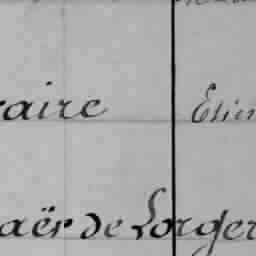 aire Etien
aër de Lorger